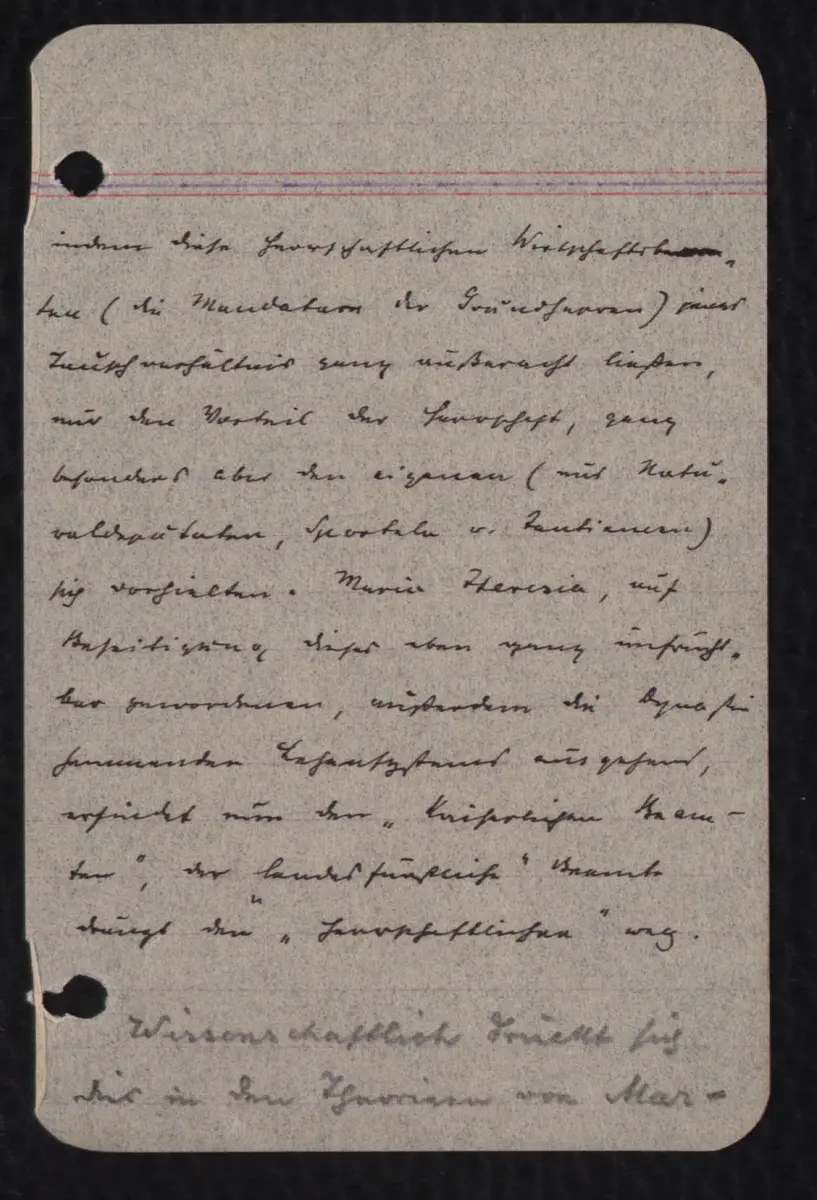 indem diese herrschaftlichen Wirtschaftsbeam-
ten (die Mandatare der Grundherren) jenes
Tauschverhältnis ganz außeracht ließen,
nur den Vorteil der Herrschaft, ganz
besonders aber den eigenen (mit Natu-
raldeputaten, Sporteln u. Tantiemen)
sich vorhielten. Maria Theresia, auf
Beseitigung dieses eben ganz unfrucht-
bar gewordenen, außerdem die Dynastie
hemmenden Lehensystems ausgehend,
erfindet nun den „Kaiserlichen Beam-
ten“, der „landesfürstliche“ Beamte
drängt den „herrschaftlichen“ weg.
Wissenschaftlich drückt sich
dies in den Theorieen von Mar-